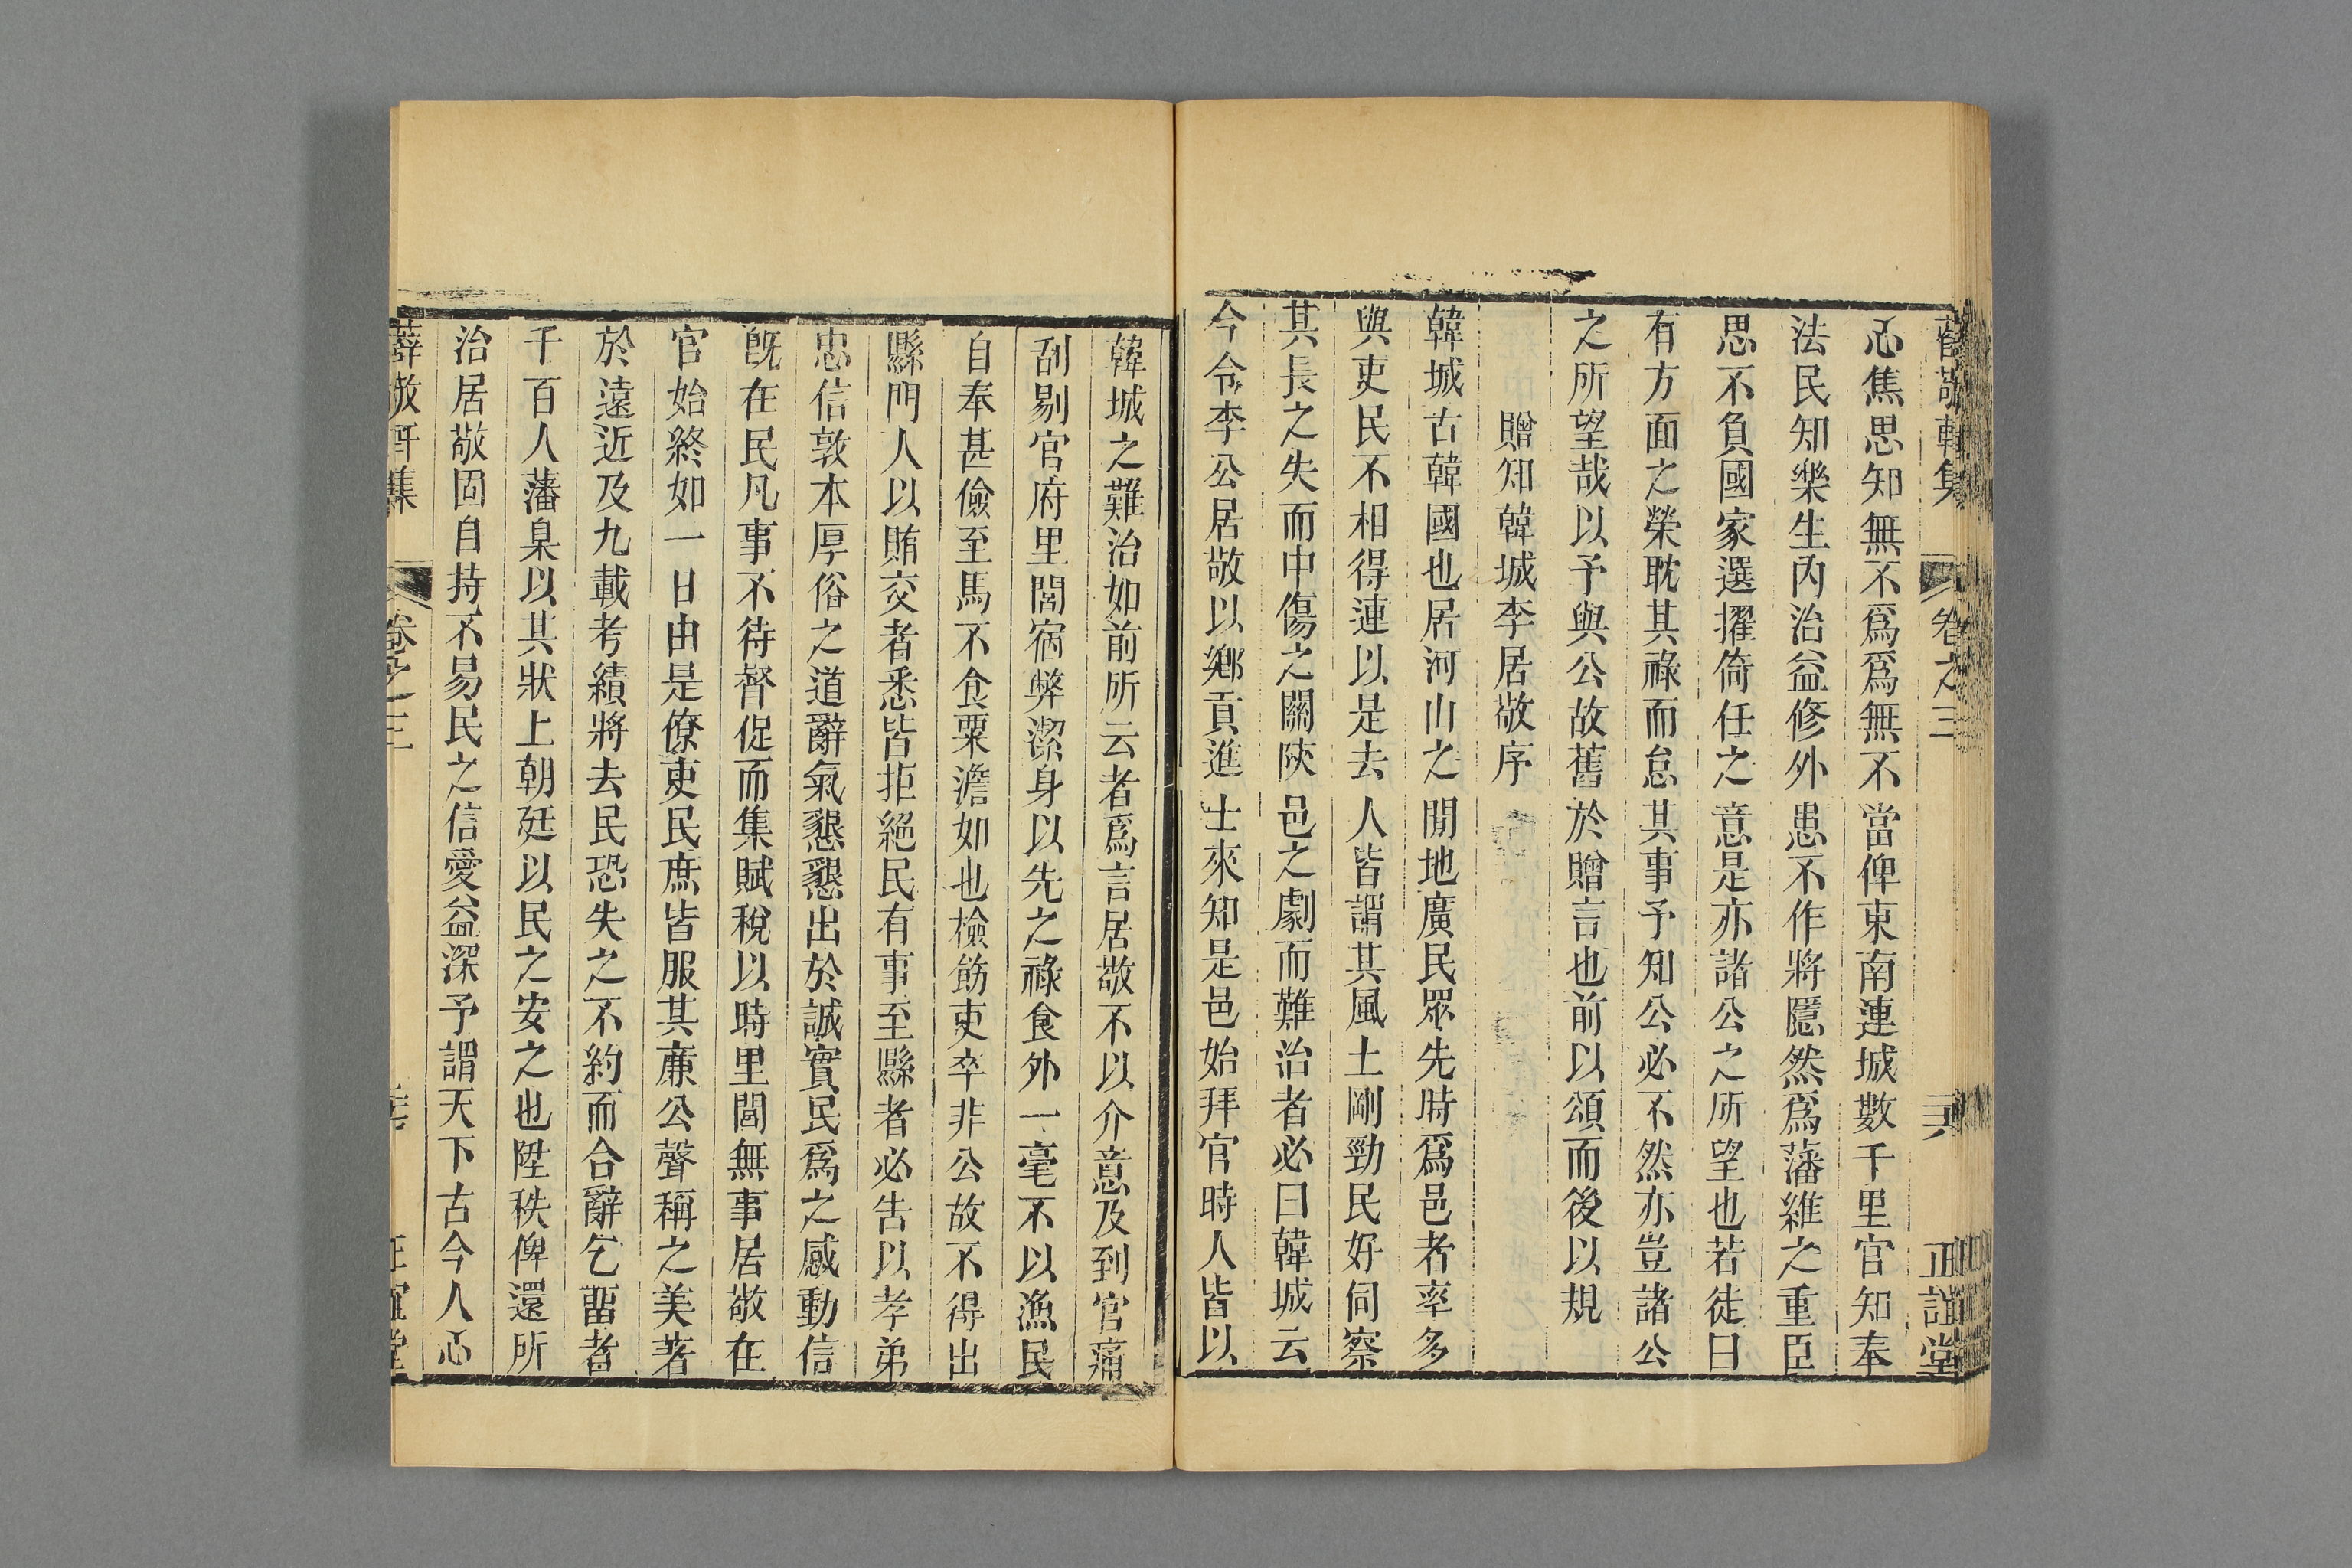 薛敬軒集 卷之三 三六 正誼堂
心焦思知無不爲爲無不當俾東南連城數千里官知奉
法民知樂生內治益修外患不作將隱然爲藩維之重臣
思不負國家選擢倚任之意是亦諸公之所望也若徒曰
有方面之榮耽其祿而怠其事予知公必不然亦豈諸公
之所望哉以予與公故舊於贈言也前以頌而後以規
贈知韓城李居敬序
韓城古韓國也居河山之閒地廣民眾先時爲邑者率多
與吏民不相得連以是去人皆謂其風土剛勁民好伺察
其長之失而中傷之關陝邑之劇而難治者必曰韓城云
今令李公居敬以鄉貢進士來知是邑始拜官時人皆以
韓城之難治如前所云者爲言居敬不以介意及到官痛
刮剔官府里閭宿弊潔身以先之祿食外一毫不以漁民
自奉甚儉至馬不食粟澹如也檢飭吏卒非公故不得出
縣門人以賄交者悉皆拒絕民有事至縣者必告以孝弟
忠信敦本厚俗之道辭氣懇懇出於誠實民爲之感動信
旣在民凡事不待督促而集賦稅以時里閭無事居敬在
官始終如一日由是僚吏民庶皆服其廉公聲稱之美著
於遠近及九載考績將去民恐失之不約而合辭乞留者
千百人藩臬以其狀上朝廷以民之安之也陞秩俾還所
治居敬固自持不易民之信愛益深予謂天下古今人心
薛敬軒集 卷之三 正誼堂